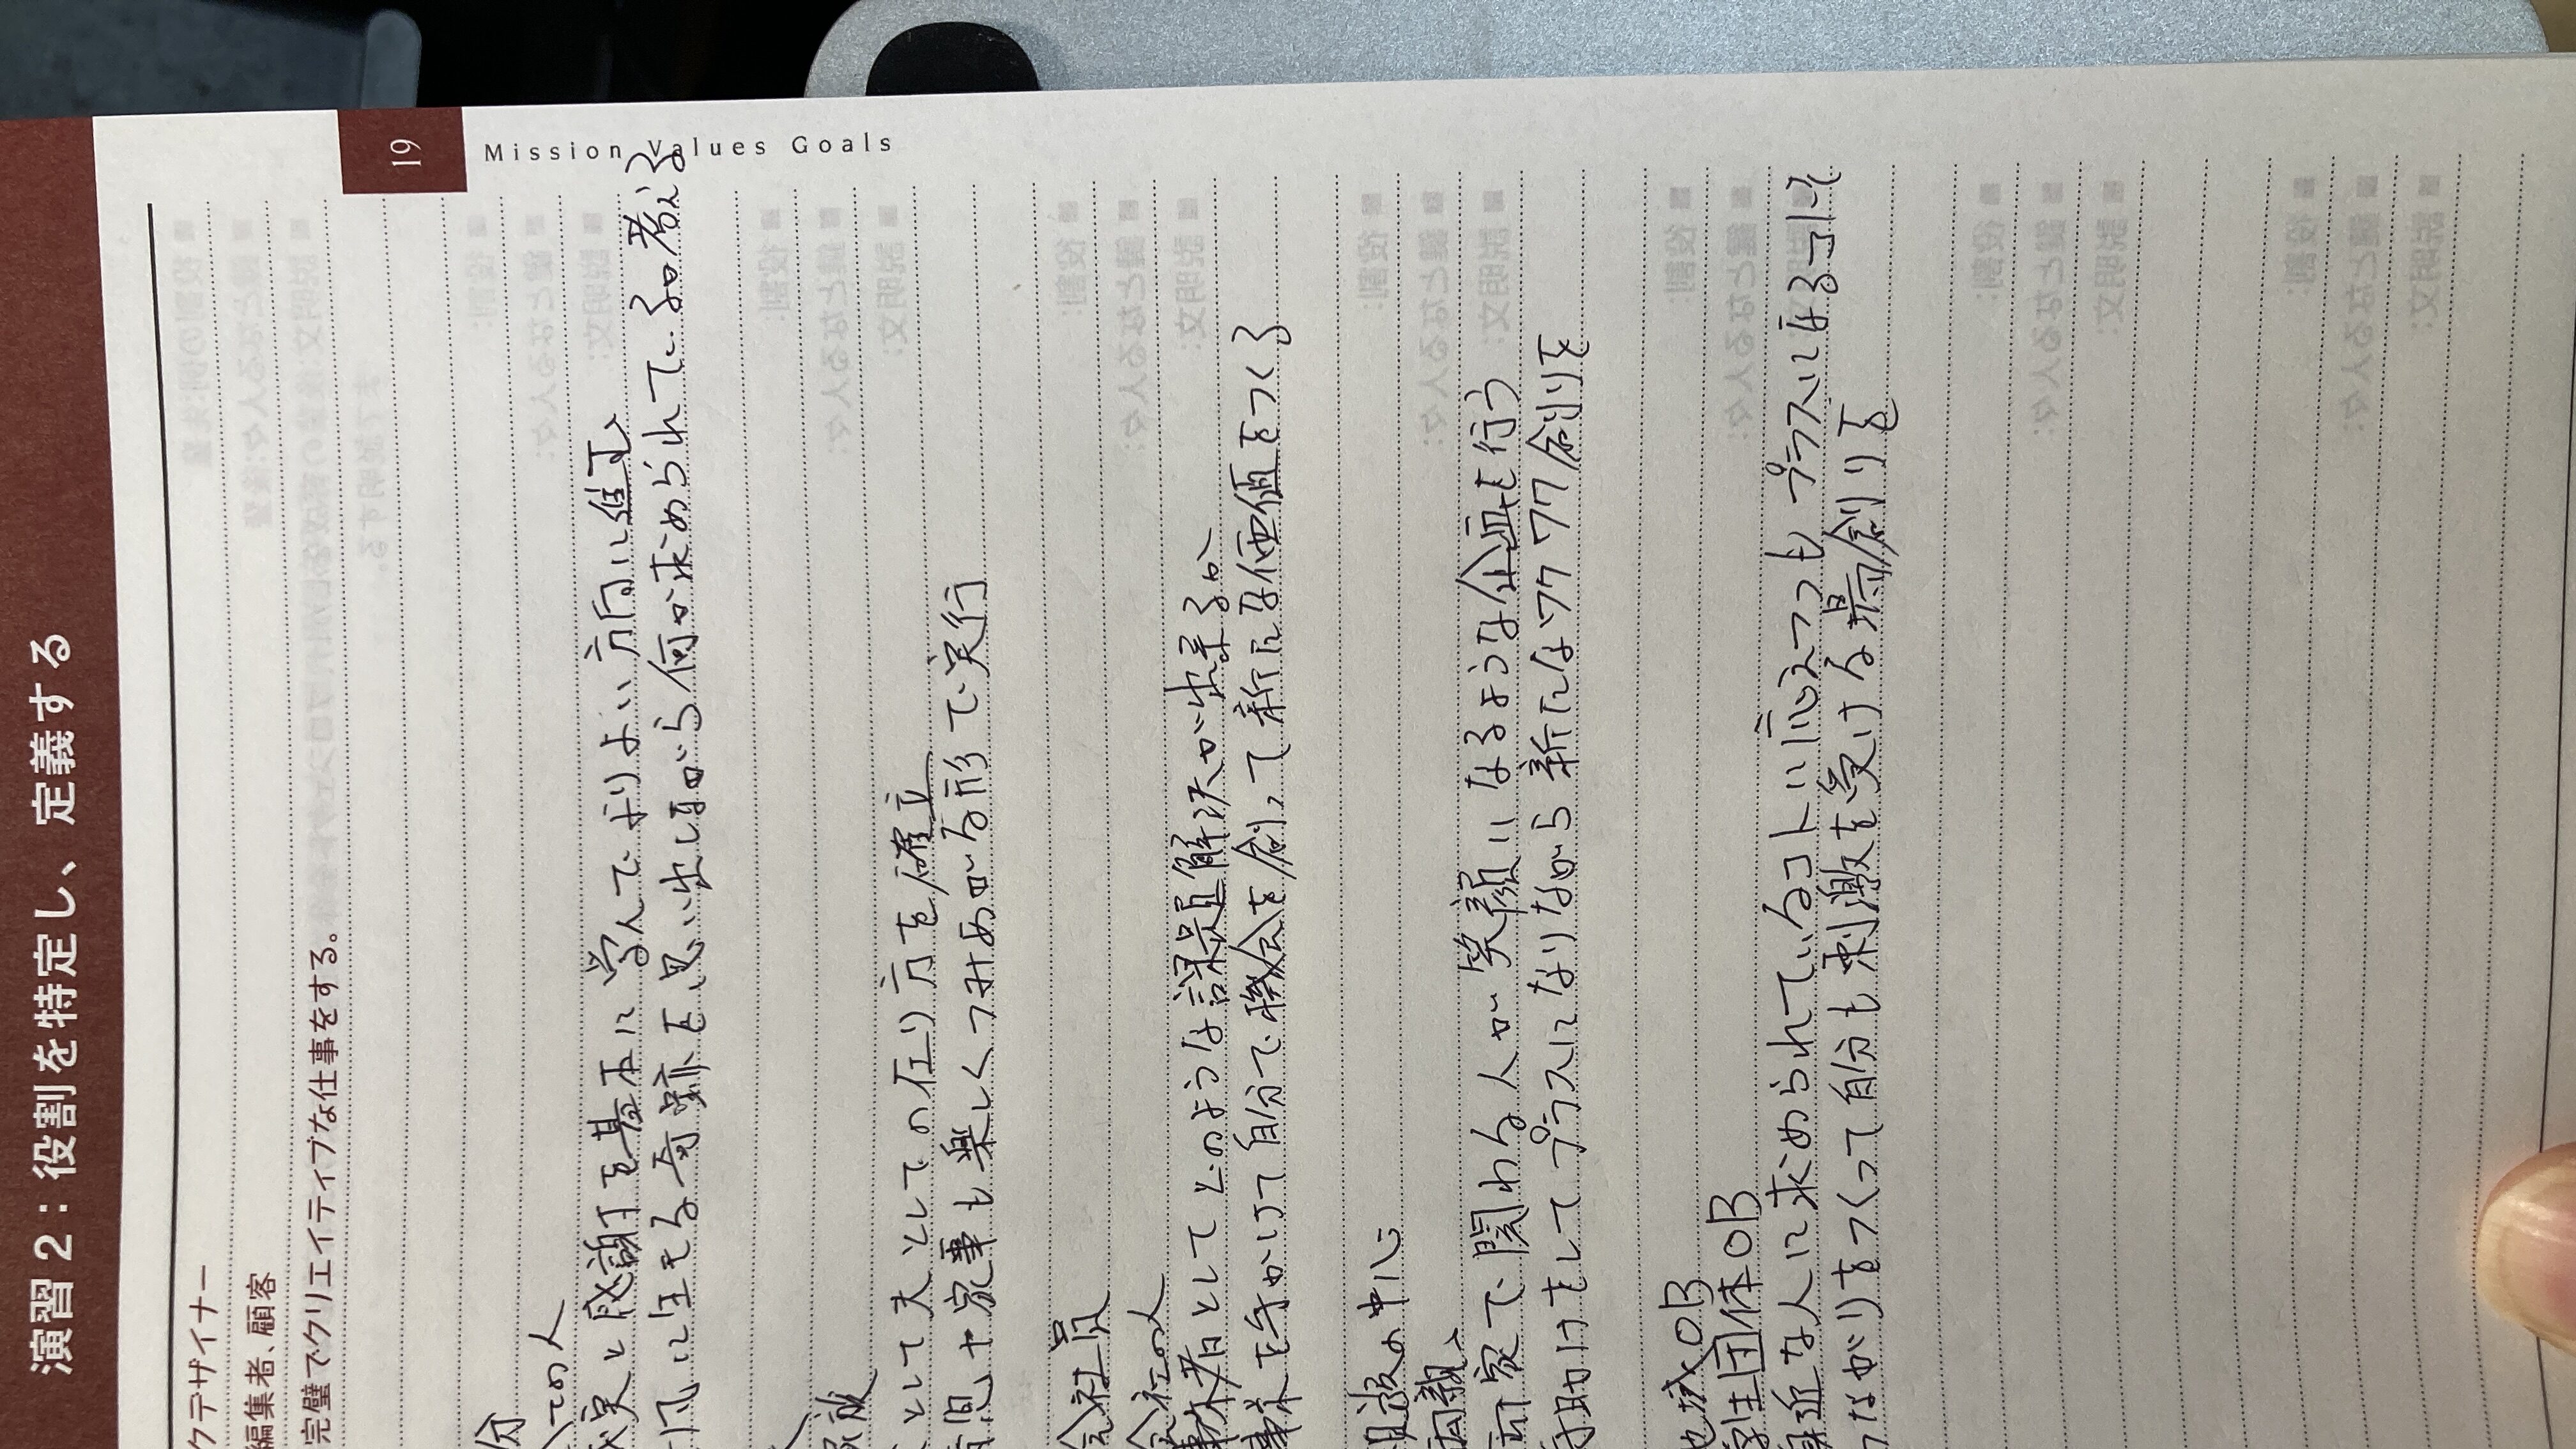 演習2：役割を特定し、定義する
19
Mission Values Goals
クデザイナー
編集者、顧客
完璧でクリエイティブな仕事をする。
分
ての人
実と感謝を基本に学んでよりよい方向に進む
に生きる奇跡を思い出しながら何が求められているか考える
家族
として夫としての在り方を確立
間や家事も楽しくつみあがる形で実行
会社員
会社の人
事業者としてどのような課題解決が出来るか
事業を手がけて自分で機会を創って新たな価値をつくる
祖父の中心
両親
両家で関わる人が笑顔になるような企画を行う
手助けをしてプラスになりながら新たなワクワク創りを
地域OB
学生団体OB
身近な人に求められているコトに応えつつもプラスになるコトを
つながりをつくって自分も刺激を受ける場創りを